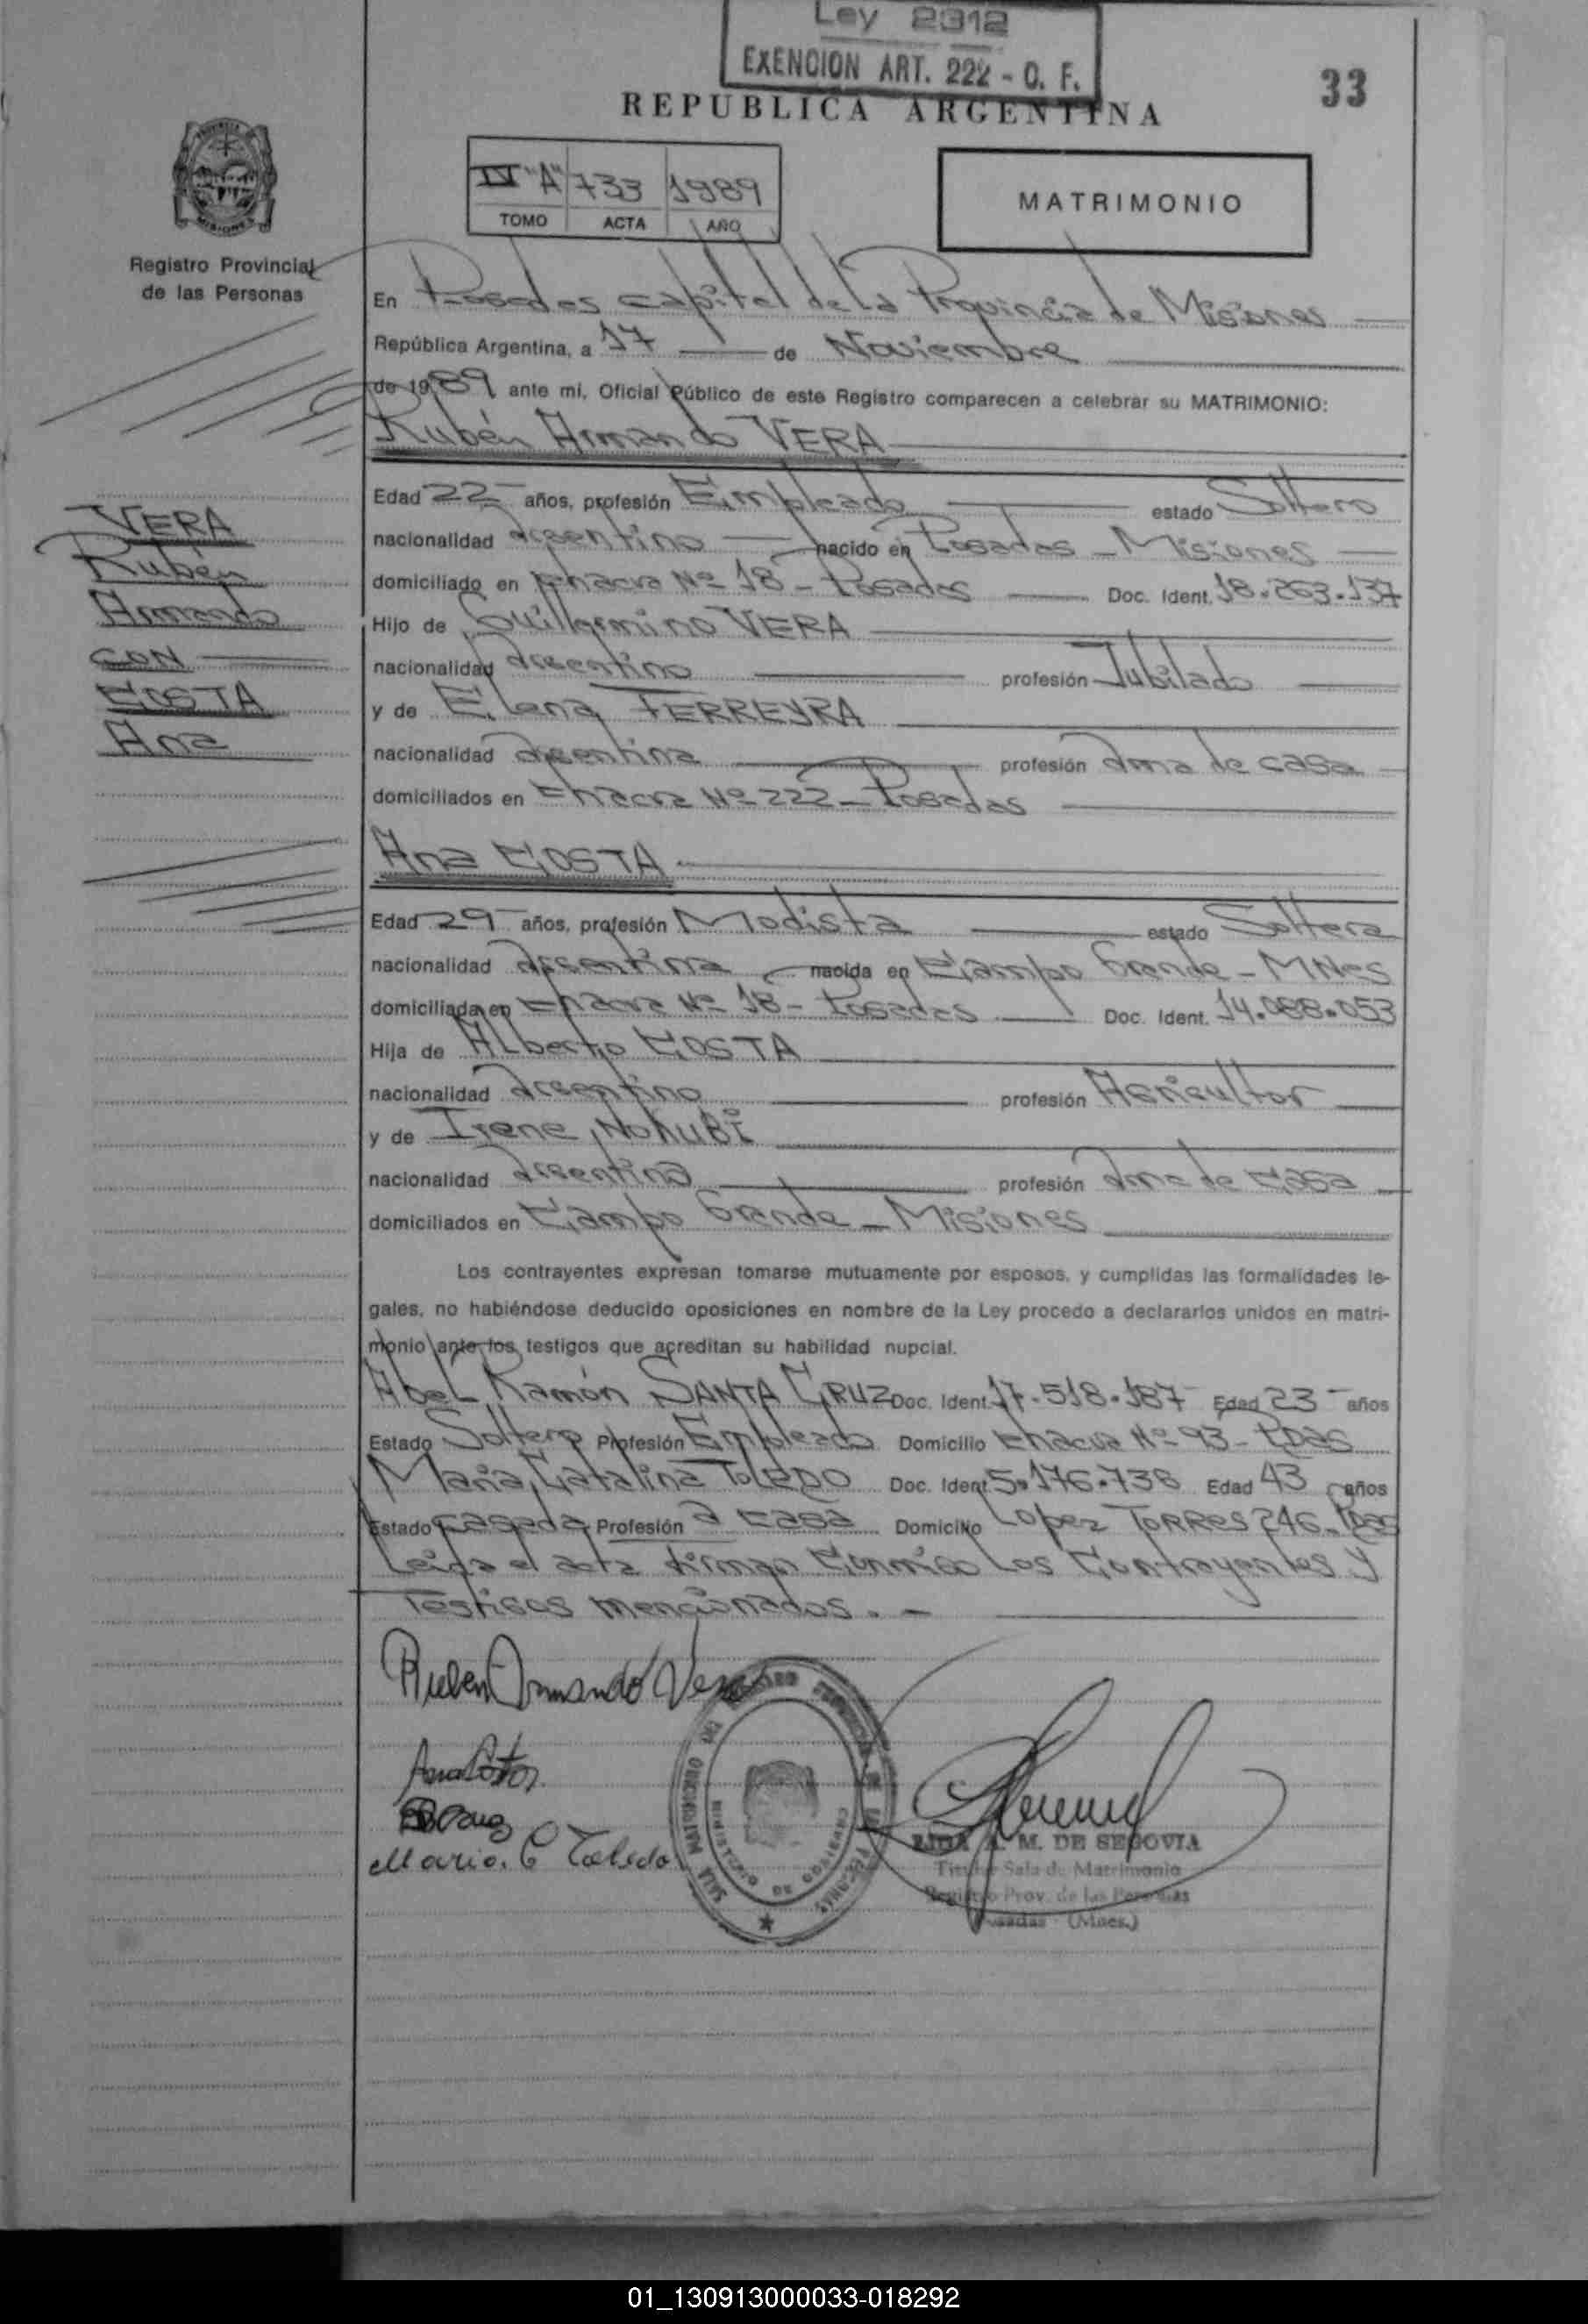 Ley 2312
EXENCION ART. 222 - O. F.
33
REPUBLICA ARGENTINA
IV "A" 733 1989
TOMO ACTA AÑO
MATRIMONIO
MISIONES
Registro Provincial
de las Personas
En Posadas capital de la Provincia de Misiones
República Argentina, a 17 de Noviembre
de 1989 ante mi, Oficial Público de este Registro comparecen a celebrar su MATRIMONIO:
Rubén Armando VERA
Edad 22 años, profesión Empleado estado Soltero
nacionalidad argentino nacido en Posadas - Misiones
domiciliado en Chacra Nº 18 - Posadas Doc. Ident. 18.263.137
Hijo de Guillermino VERA
nacionalidad argentino profesión Jubilado
y de Elena FERREYRA
nacionalidad argentina profesión ama de casa
domiciliados en Chacra Nº 222 - Posadas
VERA
Rubén
Armando
CON
COSTA
Ana
Ana COSTA
Edad 29 años, profesión Modista estado Soltera
nacionalidad argentina nacida en Campo Grande - MNes
domiciliada en Chacra Nº 18 - Posadas Doc. Ident. 14.088.053
Hija de Alberto COSTA
nacionalidad argentino profesión Agricultor
y de Irene
nacionalidad argentina profesión ama de casa
domiciliados en Campo Grande - Misiones
Los contrayentes expresan tomarse mutuamente por esposos, y cumplidas las formalidades le-
gales, no habiéndose deducido oposiciones en nombre de la Ley procedo a declararlos unidos en matri-
monio ante los testigos que acreditan su habilidad nupcial.
Abel Ramón SANTA CRUZ Doc. Ident. 17.518.187 Edad 23 años
Estado Soltero Profesión Empleado Domicilio Chacra Nº 93 - Pdas
María Catalina TOLEDO Doc. Ident. 5.176.738 Edad 43 años
Estado casada Profesión a casa Domicilio Lopez TORRES 246. Pdas
Leida el acta firman Conmigo Los Contrayentes y
Testigos mencionados. -
Ruben Armando Vera
Ana Costa
Maria. C Toledo
SALA MATRIMONIO
MINISTERIO DE GOBIERNO
A. M. DE SEGOVIA
Titular Sala de Matrimonio
Registro Prov. de las Personas
Posadas (Mnes.)
01_130913000033-018292